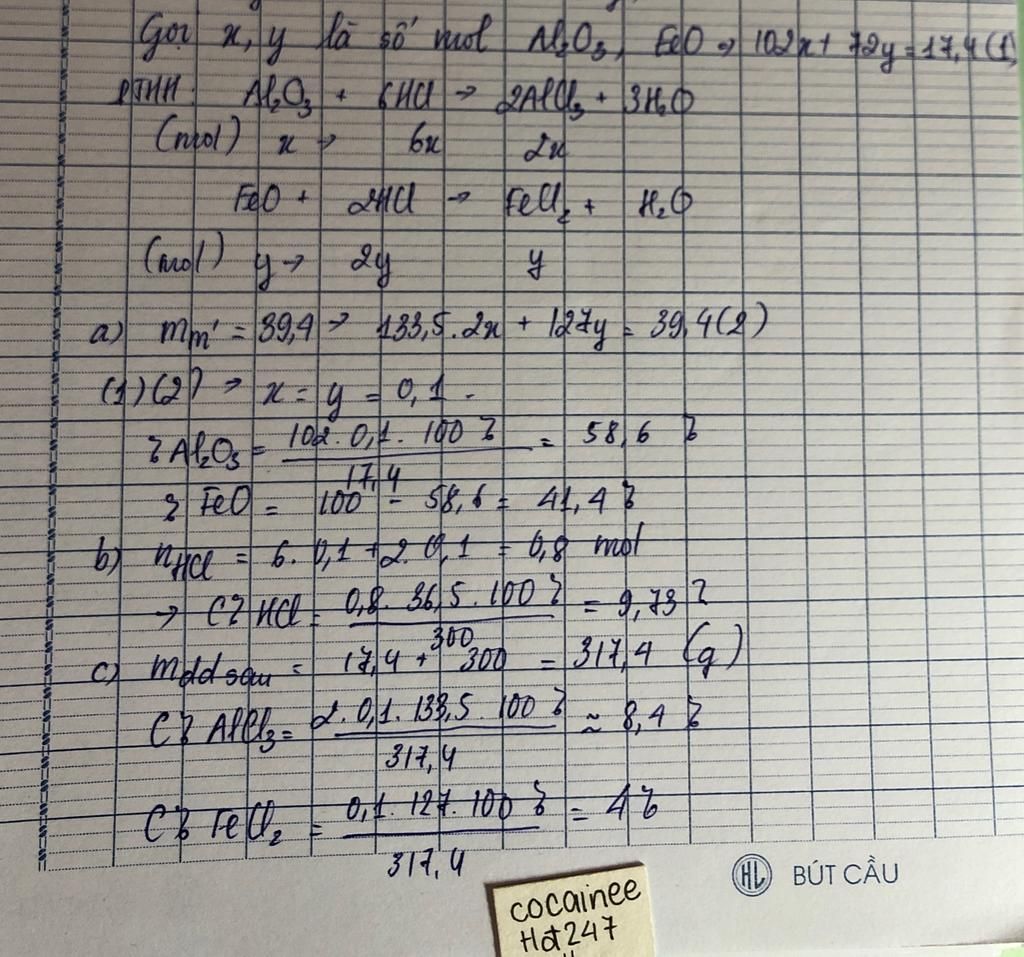 Gọi x, y là số mol Al₂O₃, FeO → 102x + 72y = 17,4 (1)
PTHH: Al₂O₃ + 6HCl → 2AlCl₃ + 3H₂O
(mol) x → 6x 2x
FeO + 2HCl → FeCl₂ + H₂O
(mol) y → 2y y
a) mm' = 39,4 → 133,5.2x + 127y = 39,4 (2)
(1)(2) → x = y = 0,1.
% Al₂O₃ = 102. 0,1. 100 % / 17,4 = 58,6 %
% FeO = 100 - 58,6 = 41,4 %
b) nHCl = 6. 0,1 + 2. 0,1 = 0,8 mol
→ C% HCl = 0,8. 36,5. 100 % / 300 = 9,73 %
c) mdd sau = 17,4 + 300 = 317,4 (g)
C% AlCl₃ = 2. 0,1. 133,5. 100 % / 317,4 ≈ 8,4 %
C% FeCl₂ = 0,1. 127. 100 % / 317,4 = 4%
HL BÚT CẦU
cocainee
Hot247